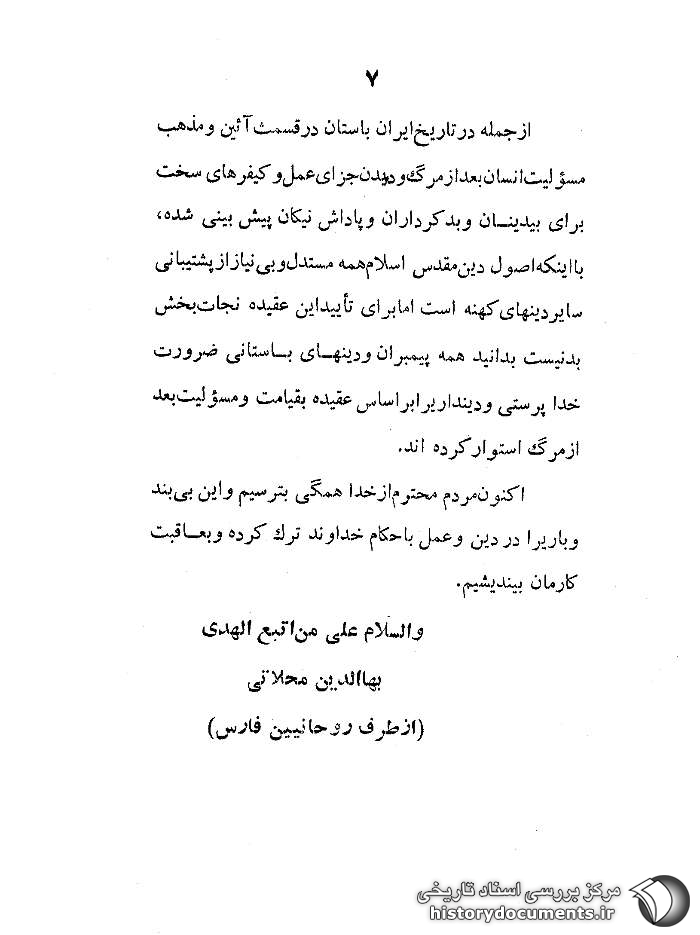 ۷
از جمله در تاریخ ایران باستان در قسمت آئین و مذهب
مسؤلیت انسان بعد از مرگ و دیدن جزای عمل و کیفرهای سخت
برای بیدینان و بدکرداران و پاداش نیکان پیش بینی شده،
با اینکه اصول دین مقدس اسلام همه مستدل و بی نیاز از پشتیبانی
سایر دینهای کهنه است اما برای تأیید این عقیده نجات بخش
بدنیست بدانید همه پیمبران و دینهای باستانی ضرورت
خدا پرستی و دینداریرا بر اساس عقیده بقیامت و مسؤلیت بعد
از مرگ استوار کرده اند.
اکنون مردم محترم از خدا همگی بترسیم و این بی بند
و باریرا در دین و عمل باحکام خداوند ترک کرده و بعاقبت
کارمان بیندیشیم.
والسلام علی من اتبع الهدی
بهاالدین محلاتی
(از طرف روحانیین فارس)
مرکز بررسی اسناد تاریخی
historydocuments.ir